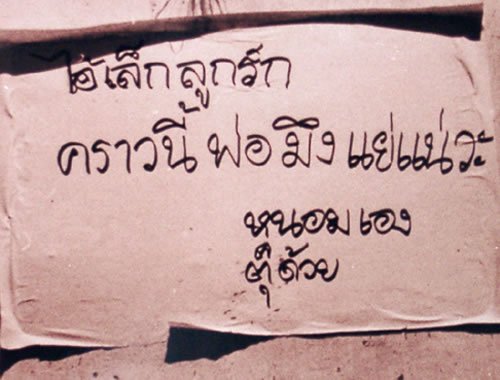 ไอ้เล็กลูกรัก
คราวนี้ พ่อมึงแย่แน่วะ
หนอมเอง
ตุ๊ด้วย